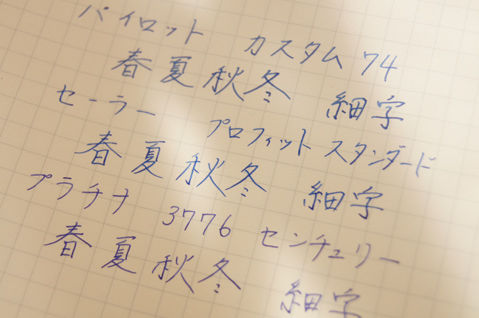 パイロット カスタム 74
春夏秋冬 細字
セーラー プロフィット スタンダード
春夏秋冬 細字
プラチナ 3776 センチュリー
春夏秋冬 細字